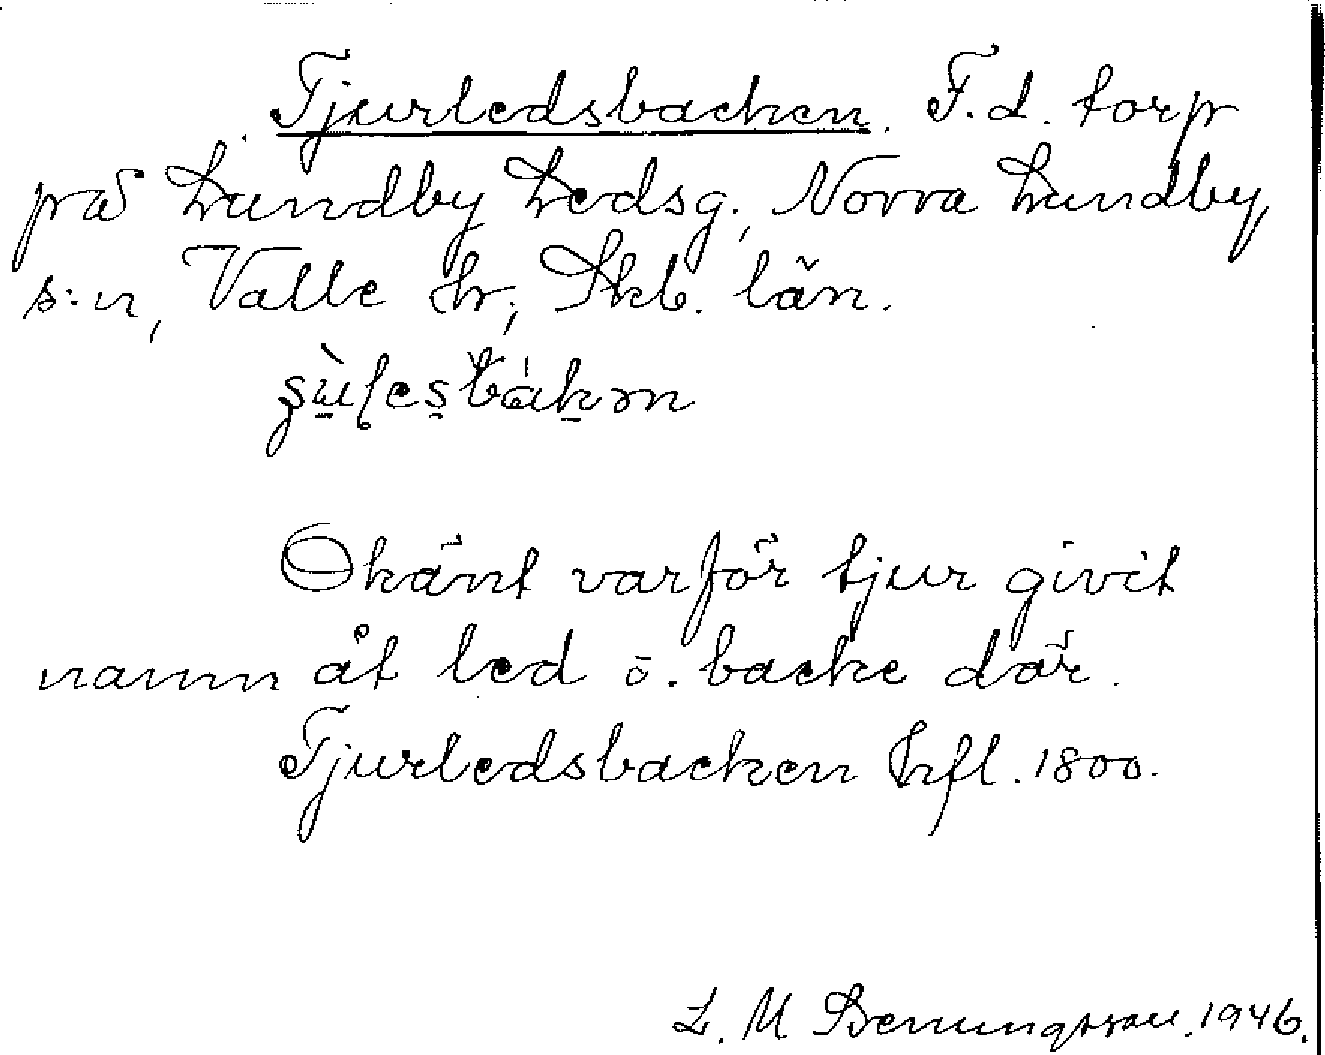 Tjurledsbacken. F.d. torp
på Lundby Ledsg., Norra Lundby
s:n, Valle hr, Skb. län.
Okänt varför tjur givit
namn åt led o. backe där.
Tjurledsbacken hfl. 1800.
L. M. 1946.